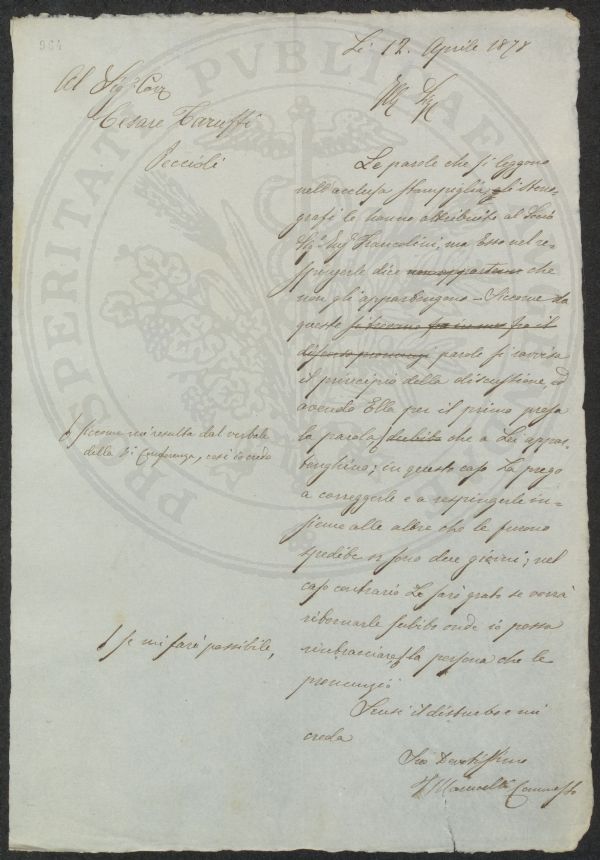 964
Li 12. Aprile 1878
Al Sigr Cav
Cesare Taruffi
Peccioli
Ill Sig
Le parole che si leggono
nell'acclusa stampiglia, gli steno-
grafi le hanno attribuite al Socio
Sigr Ingr Francolini, ma Esso nel re-
spingerle dice non appartene che
non gli appartengono - Siccome da
queste si scorono fra in mes fra il
discorso pronunzi parole si ravvisa
il principio della discussione, ed
avendo Ella per il primo presa
la parola, dubito che a Lei appar-
tenghino; in questo caso La prego
a correggerle e a respingerle in-
sieme alle altre che le furono
spedite or sono dieci giorni; nel
caso contrario Le sarò grato se vorrà
ritornarle subito onde io possa
rintracciare la persona che le
pronunziò
Scusi il disturbo e mi
creda
Suo Devotissimo
siccome mi resulta dal verbale
della Sa Conferenza, così io credo
se mi sarà possibile,
PROSPERITATI PVBLICAE AVGENDAE